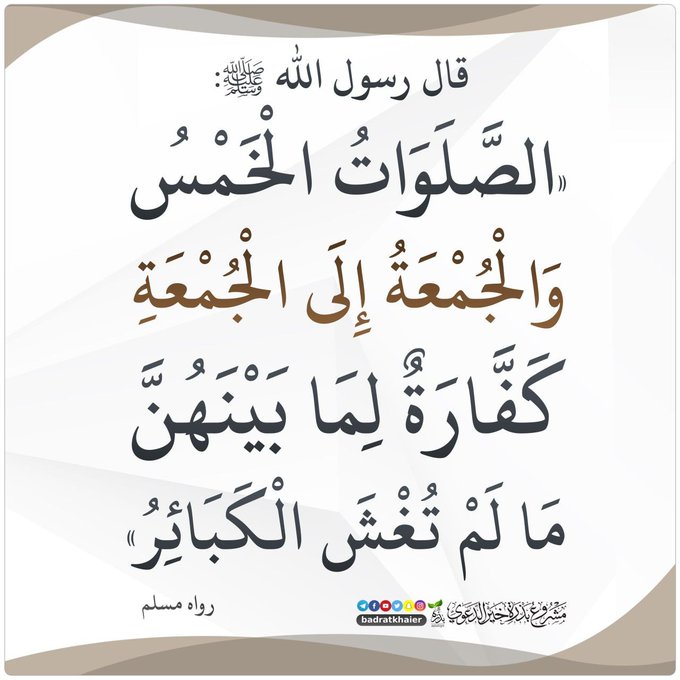 قال رسول الله ﷺ:
«الصَّلَوَاتُ الْخَمْسُ
وَالْجُمْعَةُ إِلَى الْجُمْعَةِ
كَفَّارَةٌ لِمَا بَيْنَهُنَّ
مَا لَمْ تُغْشَ الْكَبَائِرُ»
رواه مسلم
مشروع بذرة خير الدعوي
badratkhaier